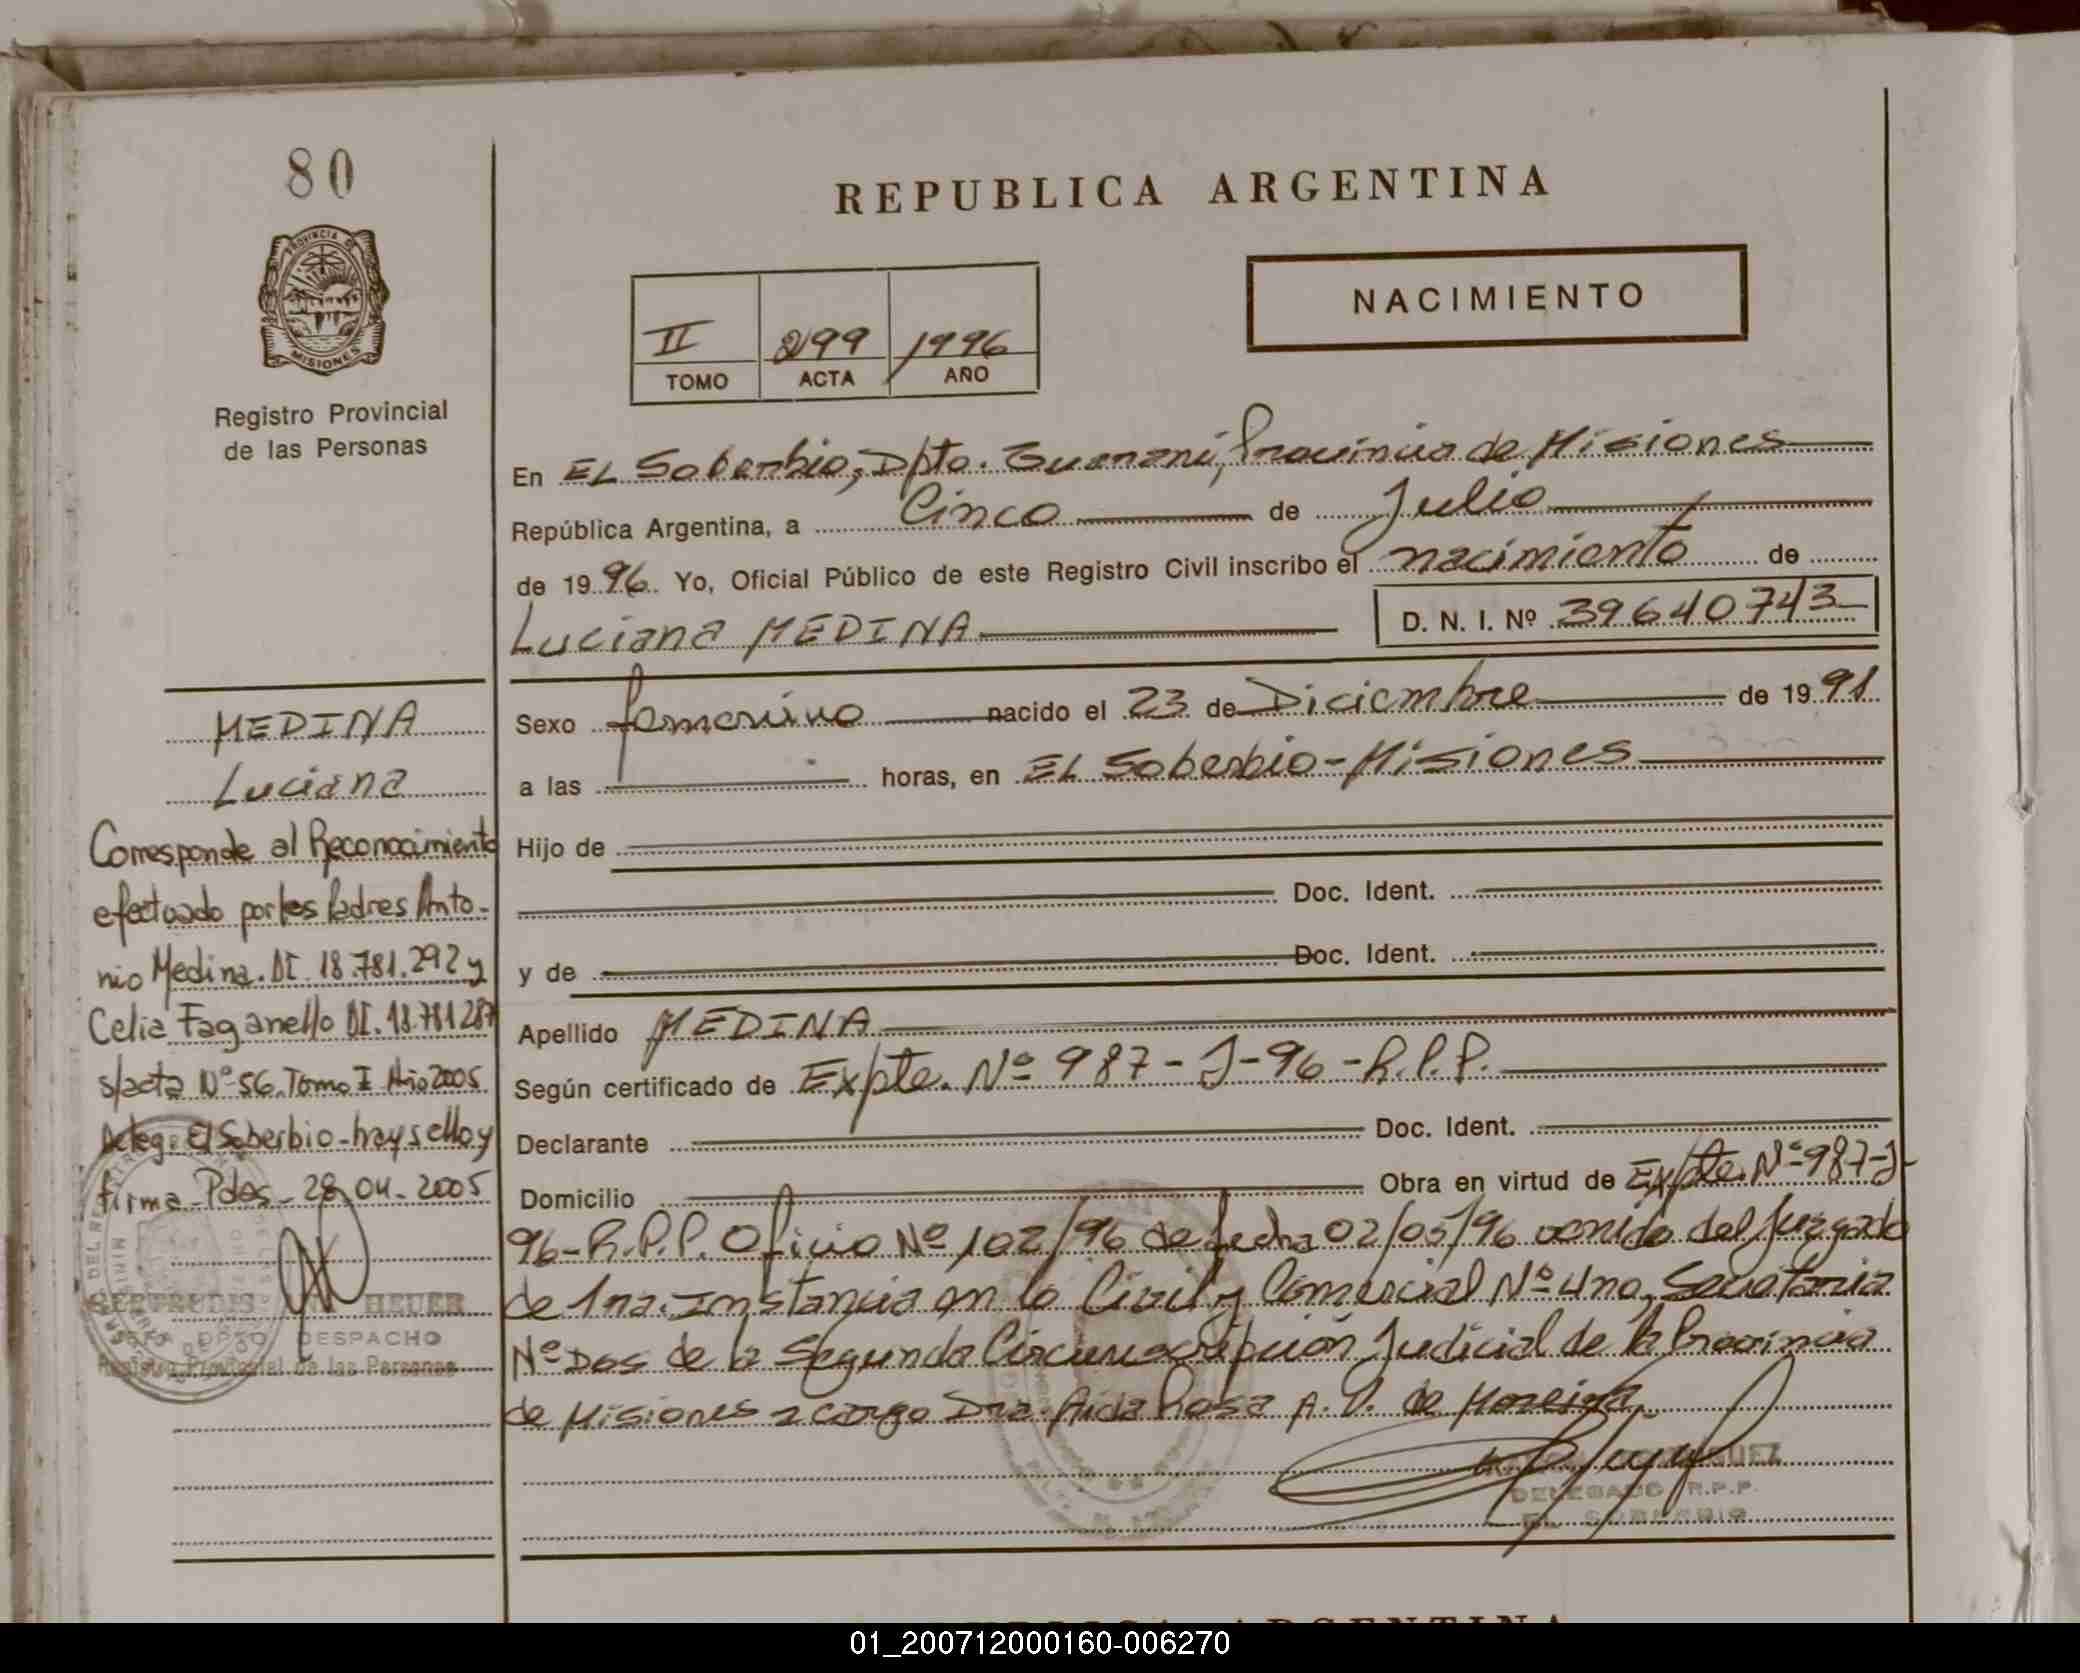 80
PROVINCIA DE
MISIONES
Registro Provincial
de las Personas
REPUBLICA ARGENTINA
NACIMIENTO
II 299 1996
TOMO ACTA AÑO
En EL Soberbio, Dpto. Guaraní, Provincia de Misiones
República Argentina, a Cinco de Julio
de 1996. Yo, Oficial Público de este Registro Civil inscribo el nacimiento de
Luciana MEDINA
D. N. I. Nº 39640743
Sexo femenino nacido el 23 de Diciembre de 1991
a las horas, en EL Soberbio-Misiones
Hijo de
Doc. Ident.
y de Doc. Ident.
Apellido MEDINA
Según certificado de Expte. Nº 987-J-96-R.P.P.
Declarante Doc. Ident.
Domicilio Obra en virtud de Expte. Nº 987-J-
96-R.P.P. Oficio Nº 102/96 de fecha 02/05/96 venido del Juzgado
de 1ra. Instancia en lo Civil y Comercial Nº Uno, Secretaria
Nº Dos de la Segunda Circunscripción Judicial de la Provincia
de Misiones a cargo Dra. Aida Rosa A. V. de Moreira.
DELEGADO R.P.P.
EL SOBERBIO
MEDINA
Luciana
Corresponde al Reconocimiento
efectuado por los Padres Anto-
nio Medina. DI. 18.781.292 y
Celia Faganello DI. 18.781287
s/acta Nº 56. Tomo I Año 2005
Deleg. El Soberbio-hay sello y
firma-Pdas-28-04-2005
GERTRUDIS HEUER
JEFA DPTO DESPACHO
Registro Provincial de las Personas
REPUBLICA ARGENTINA
01_200712000160-006270